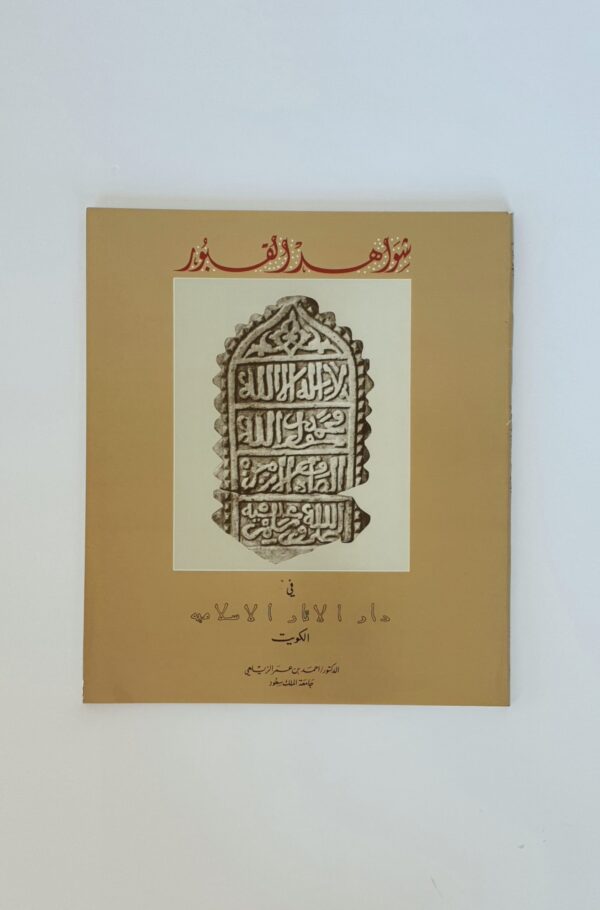 شواهد القبور
لا إله إلا الله
محمد رسول الله
في
دار الآثار الإسلامية
الكويت
الدكتور/ أحمد بن عمر الزيلعي
جامعة الملك سعود